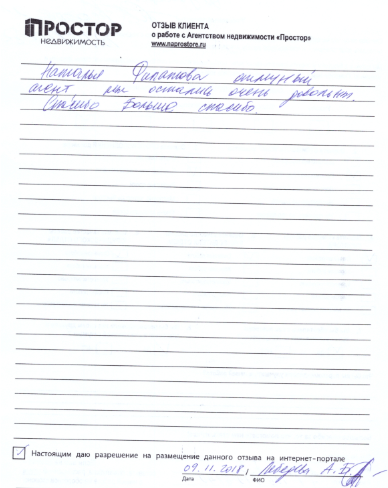 ПРОСТОР
НЕДВИЖИМОСТЬ
ОТЗЫВ КЛИЕНТА
о работе с Агентством недвижимости «Простор»
www.naprostore.ru
Наталья Филатова отличный
агент мы остались очень довольны.
Спасибо Большое спасибо.
Настоящим даю разрешение на размещение данного отзыва на интернет-портале
09.11.2018, Лебедева А.Б
Дата ФИО